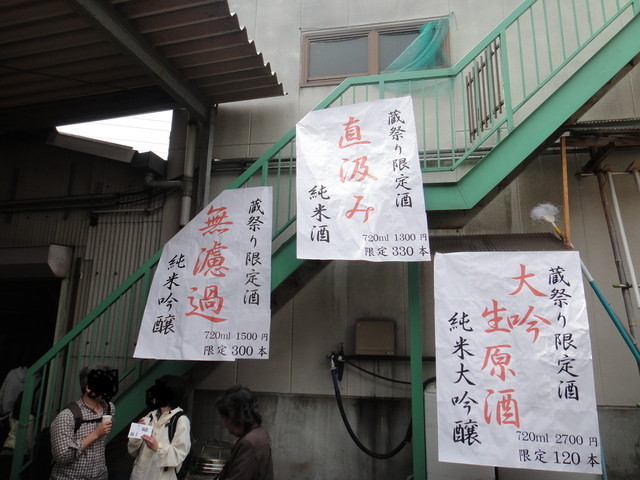 蔵祭り限定酒
無濾過
純米吟醸
720ml 1500円
限定 300本
蔵祭り限定酒
直汲み
純米酒
720ml 1300円
限定 330本
蔵祭り限定酒
大吟
生原酒
純米大吟醸
720ml 2700円
限定 120本